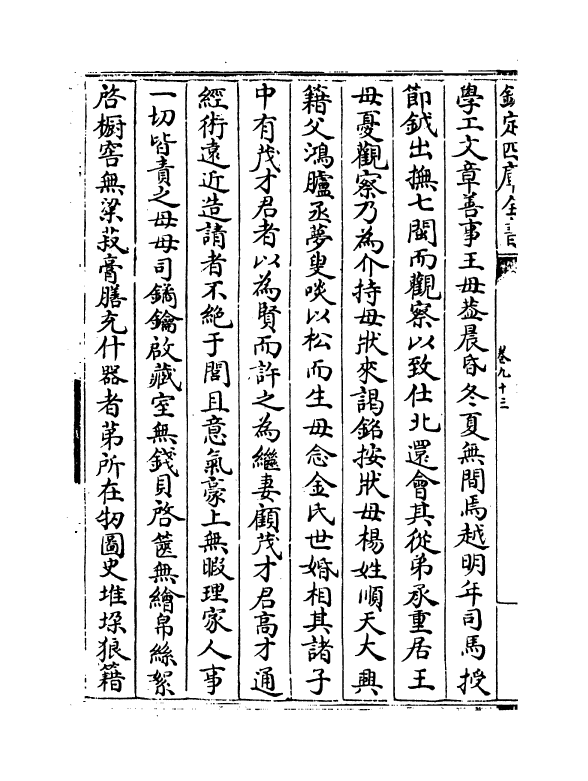 欽定四庫全書
卷九十三
學工文章善事王母葢晨昏冬夏無間焉越明年司馬授
節鉞出撫七閩而觀察以致仕北還會其從弟承重居王
母憂觀察乃為介持母狀來謁銘按狀母楊姓順天大興
籍父鴻臚丞夢叟啖以松而生母念金氏世婚相其諸子
中有茂才君者以為賢而許之為繼妻顧茂才君高才通
經術遠近造請者不絕于閭且意氣豪上無暇理家人事
一切皆責之母母司鏑鑰啟藏室無錢貝啓篋無繒帛絲絮
啓櫥窖無粱菽膏膳充什器者第所在物圖史堆垛狼籍